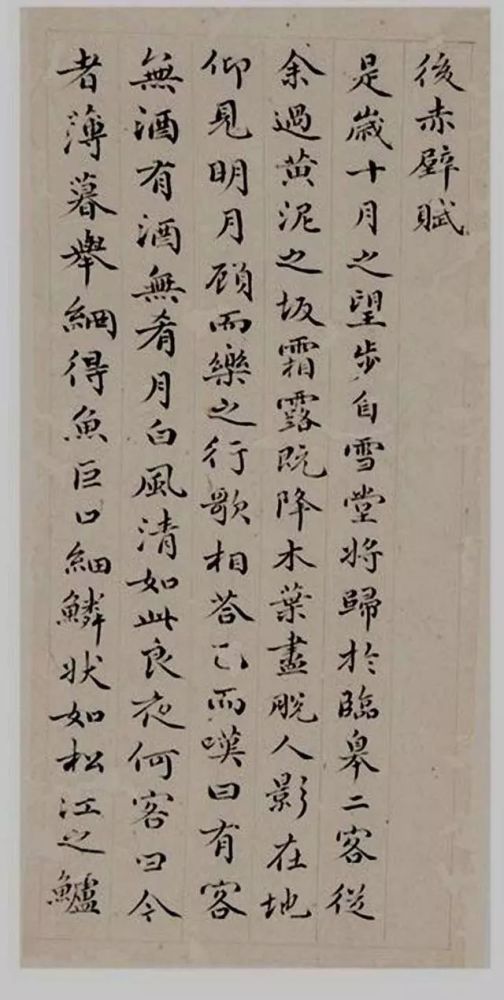 後赤壁賦
是歲十月之望步自雪堂將歸於臨皋二客從
余過黃泥之坂霜露既降木葉盡脫人影在地
仰見明月顧而樂之行歌相答已而嘆曰有客
無酒有酒無肴月白風清如此良夜何客曰今
者薄暮舉網得魚巨口細鱗狀如松江之鱸